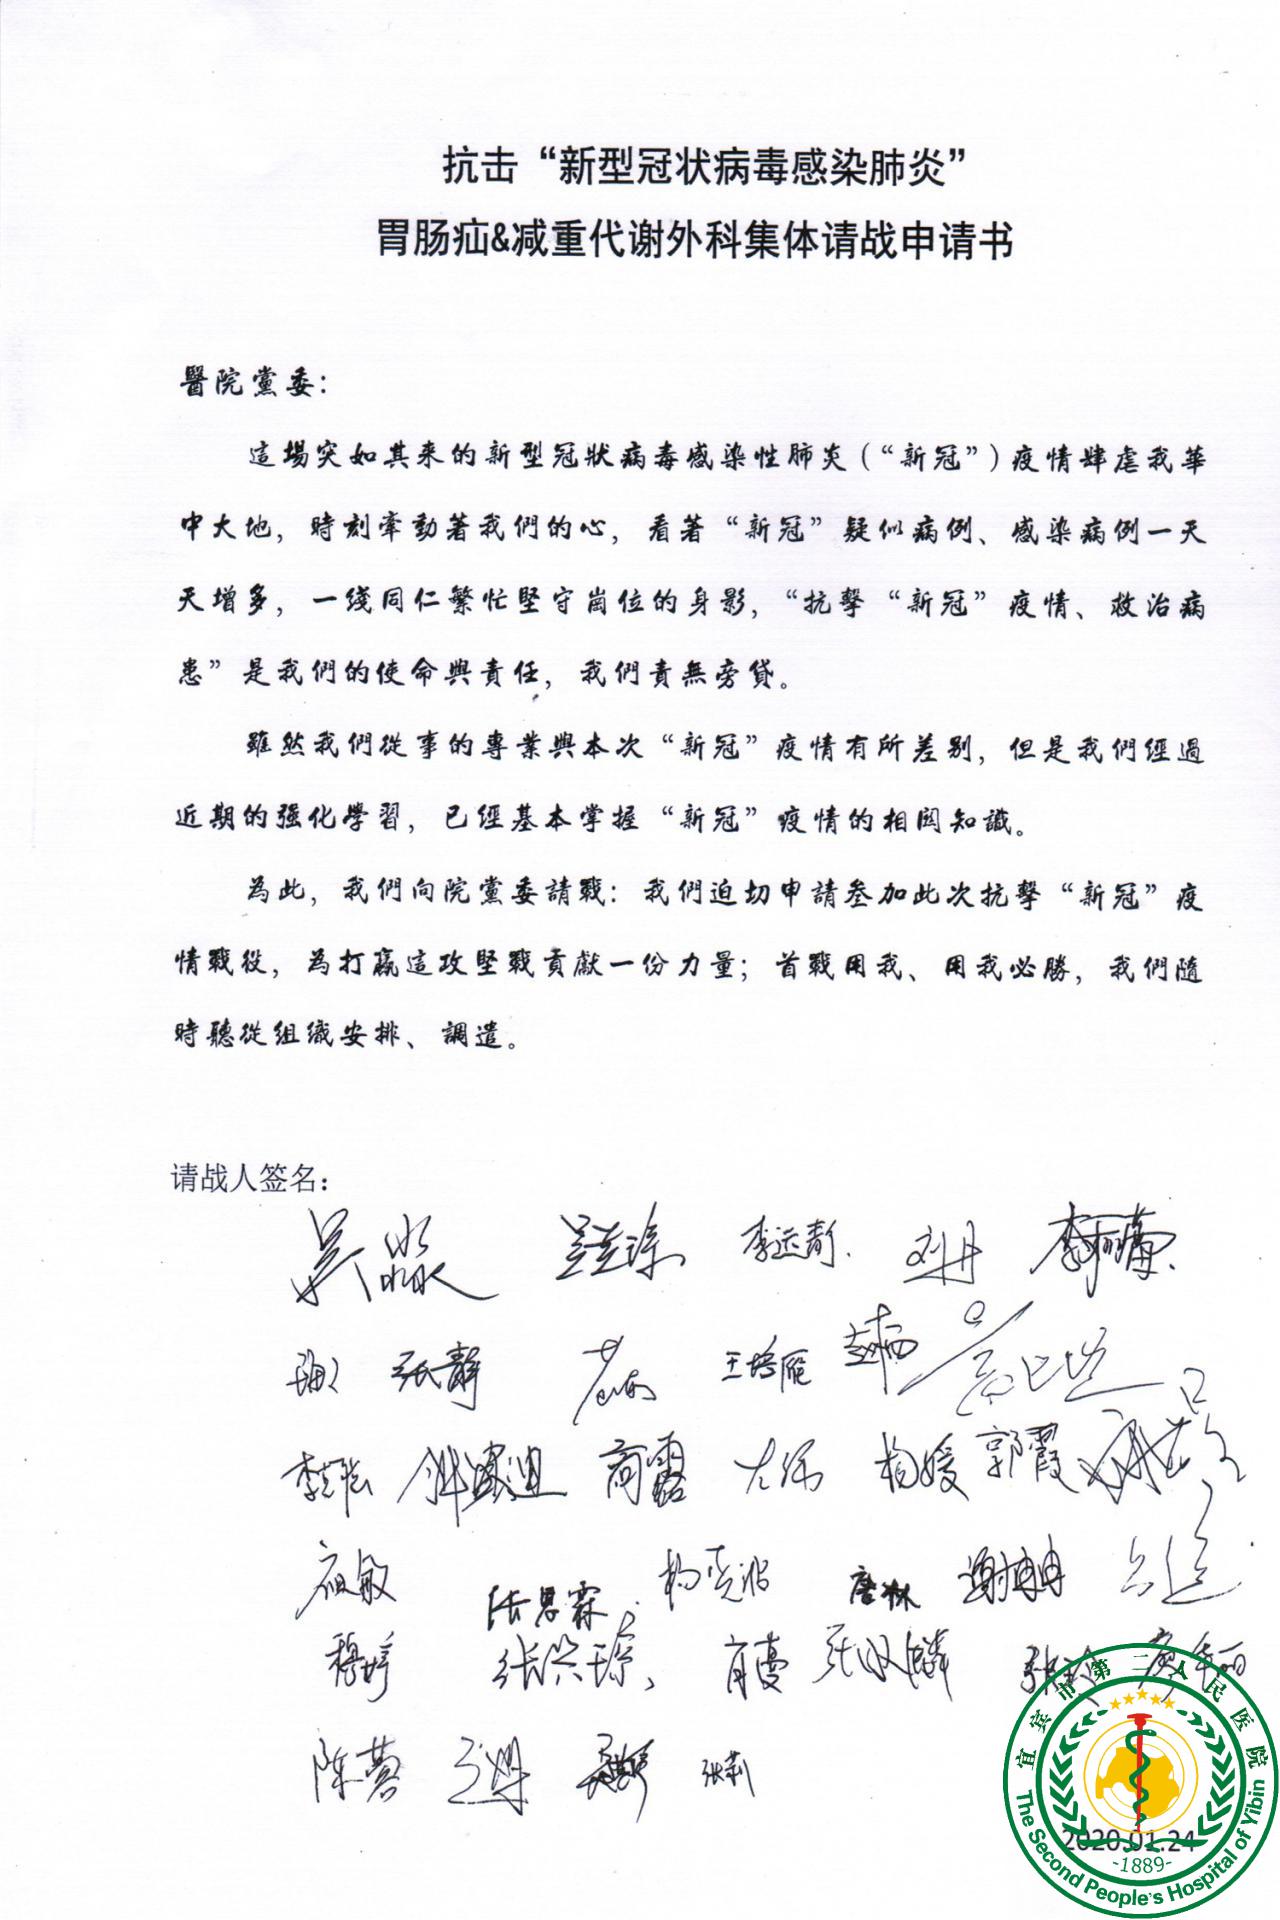 抗击“新型冠状病毒感染肺炎”
胃肠疝&减重代谢外科集体请战申请书
醫院黨委：
這場突如其来的新型冠狀病毒感染性肺炎（“新冠”）疫情肆虐我華
中大地，時刻牽動著我們的心，看著“新冠”疑似病例、感染病例一天
天增多，一綫同仁繁忙堅守崗位的身影，“抗擊“新冠”疫情、救治病
患”是我們的使命與責任，我們責無旁貸。
雖然我們從事的專業與本次“新冠”疫情有所差别，但是我們經過
近期的强化學習，已經基本掌握“新冠”疫情的相関知識。
為此，我們向院黨委請戰：我們迫切申請叁加此次抗擊“新冠”疫
情戰役，為打贏這攻堅戰貢獻一份力量；首戰用我、用我必勝，我們隨
時聽從組織安排、調遣。
请战人签名：
吴淼 李远静 刘丹
张静 王培雁
商露 杨媛 郭霞
张思霖 唐淋 谢冉冉
穆婷 肖蔓
陈蕾 张莉
宜宾市第二人民医院
2020.01.24
-1889-
The Second People's Hospital of Yibin